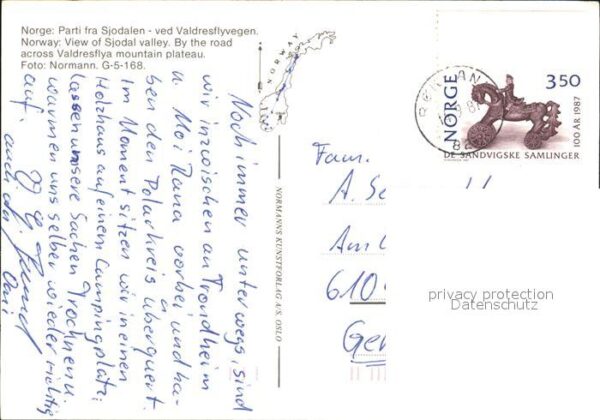 Norge: Parti fra Sjodalen - ved Valdresflyvegen.
Norway: View of Sjodal valley. By the road
across Valdresflya mountain plateau.
Foto: Normann. G-5-168.
NORWAY
Noch immer unterwegs, sind
wir inzwischen an Trondheim
u. Moi Rana vorbei und ha-
ben den Polarkreis überquert.
Im Moment sitzen wir in einen
Holzhaus auf einem Campingplatz,
lassen unsere Sachen trocknen u.
wärmen uns selber wieder richtig
auf.
auch der
NORMANNS KUNSTFORLAG A/S, OSLO
NORGE
350
100 ÅR 1987
DE SANDVIGSKE SAMLINGER
82
Fam.
A. Se
Am
610
Ger
privacy protection
Datenschutz